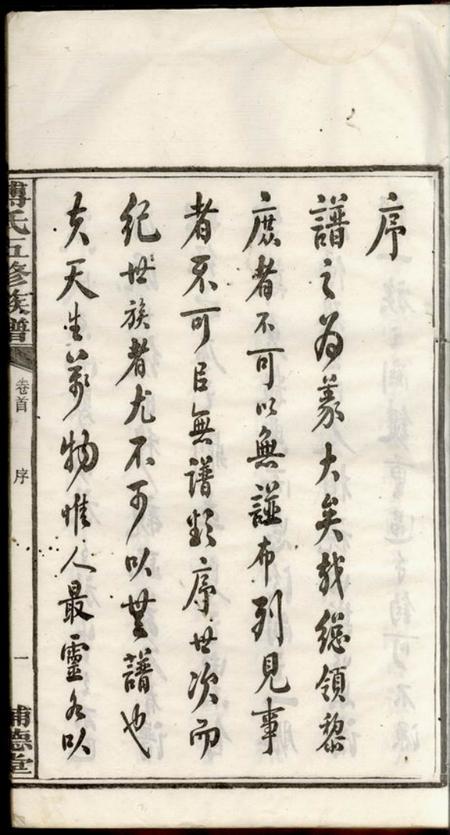 序
譜之為義大矣哉總領黎
庶者不可以無譜布列見事
者不可㠯無譜類序世次而
紀世族者尤不可以無譜也
夫天生萬物惟人最靈名以
傅氏五修族譜
卷首
序
一
補德堂